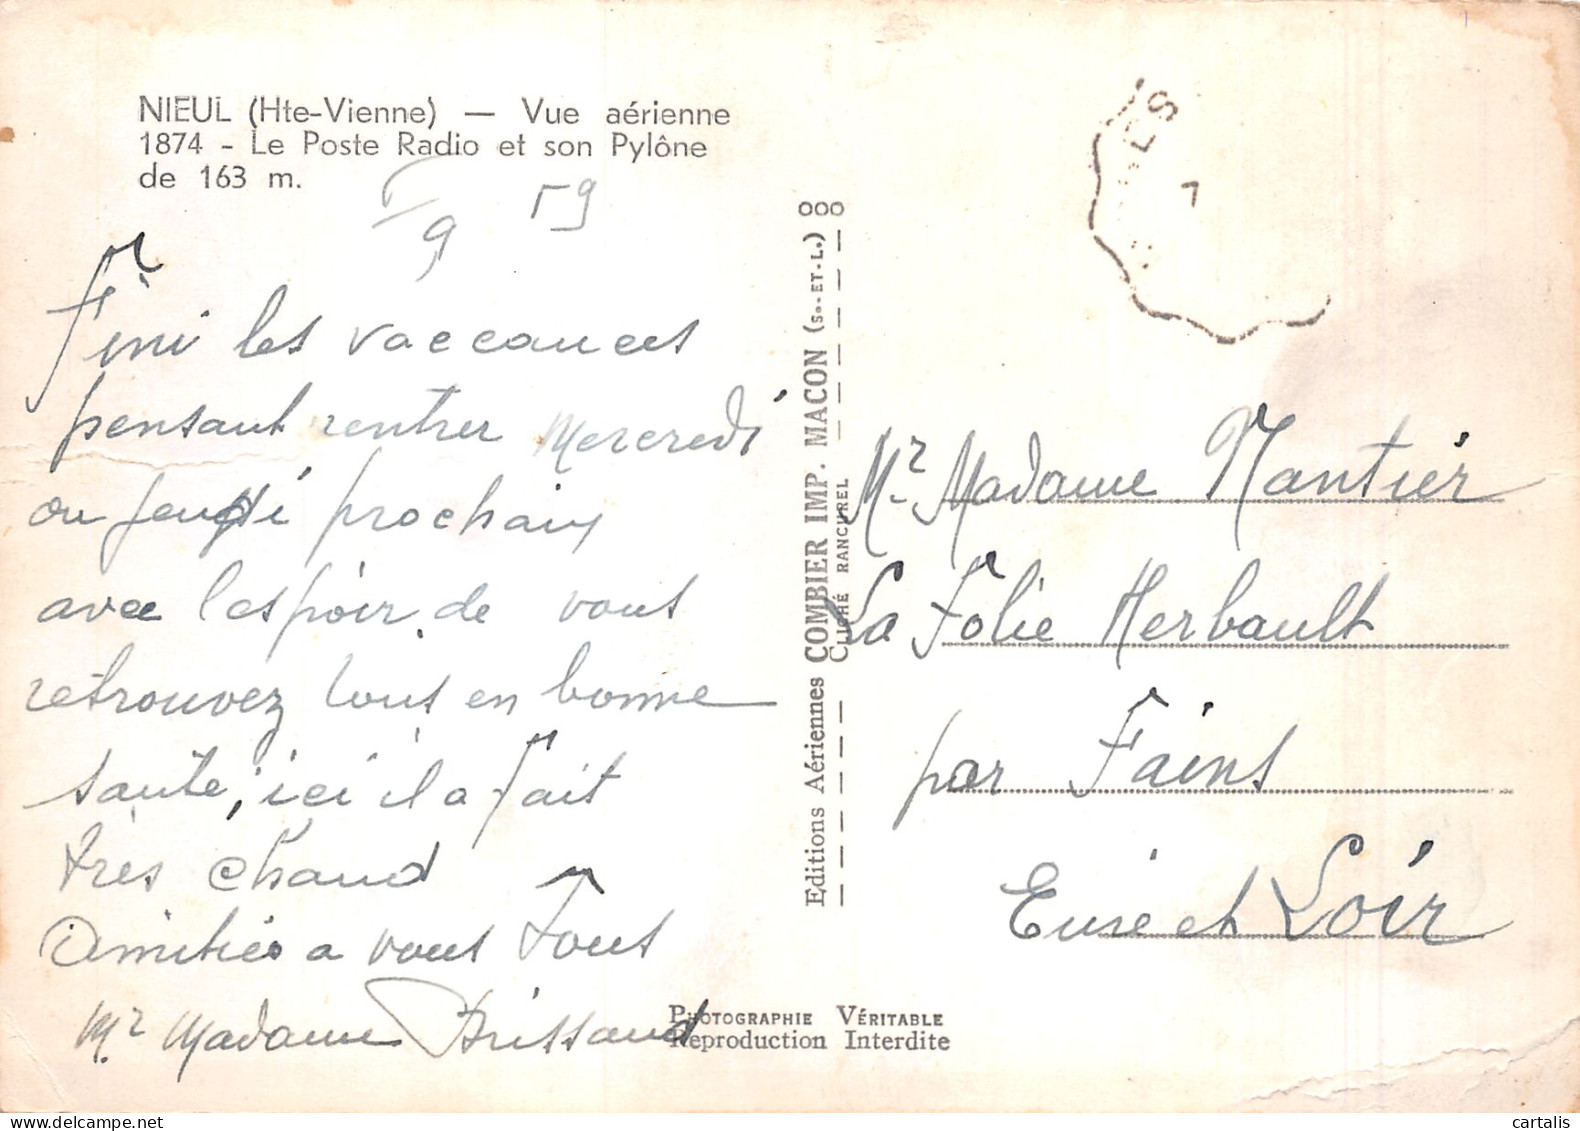 NIEUL (Hte-Vienne) — Vue aérienne
1874 - Le Poste Radio et son Pylône
de 163 m.
59
9
Fini les vaccances
pensant rentrer Mercredi
ou jeudi prochain
avec l'espoir de vous
retrouvez tous en bonne
santé, ici il a fait
très chaud
Amitiés a vous Tous
Mr Madame Brissaud
Editions Aériennes COMBIER IMP. MACON (S.-ET-L.) 000
CLICHÉ RANCUREL
PHOTOGRAPHIE VÉRITABLE
Reproduction Interdite
7
Mr Madame Mantier
La Folie Herbault
par Fains
Eure et Loir
cartalis